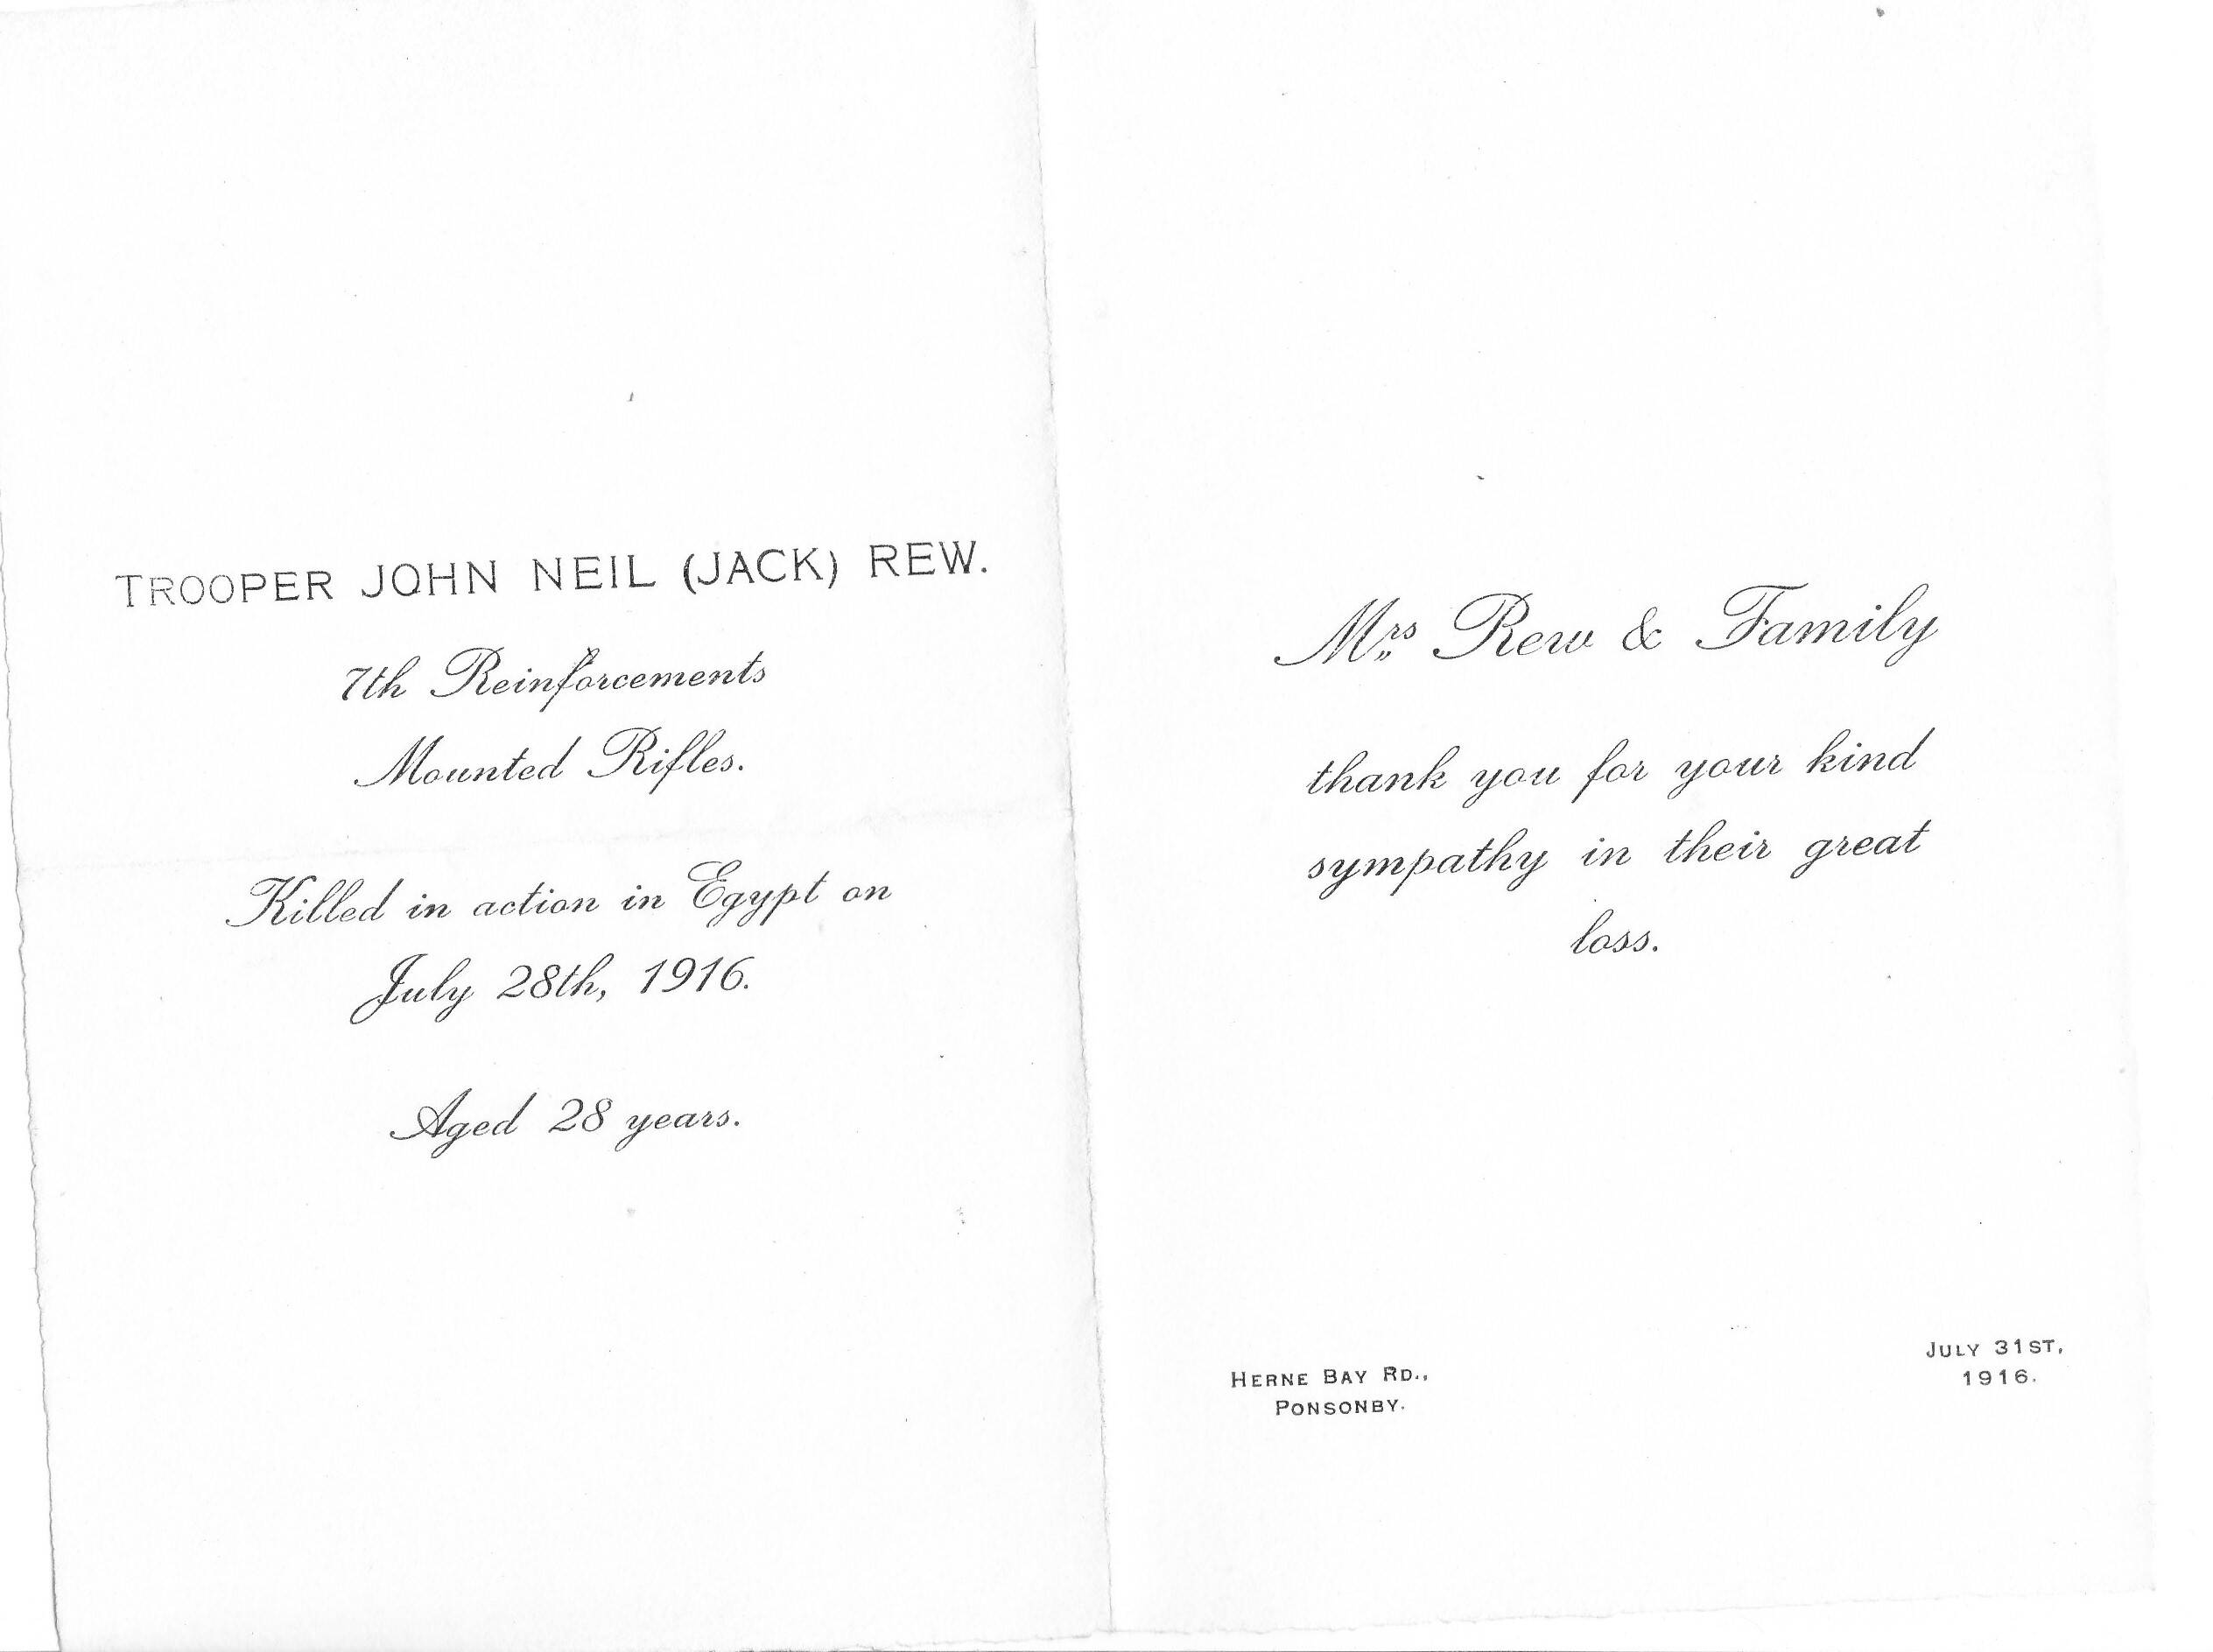 TROOPER JOHN NEIL (JACK) REW.
7th Reinforcements
Mounted Rifles.
Killed in action in Egypt on
July 28th, 1916.
Aged 28 years.
Mrs Rew & Family
thank you for your kind
sympathy in their great
loss.
HERNE BAY RD.,
PONSONBY.
JULY 31ST,
1916.